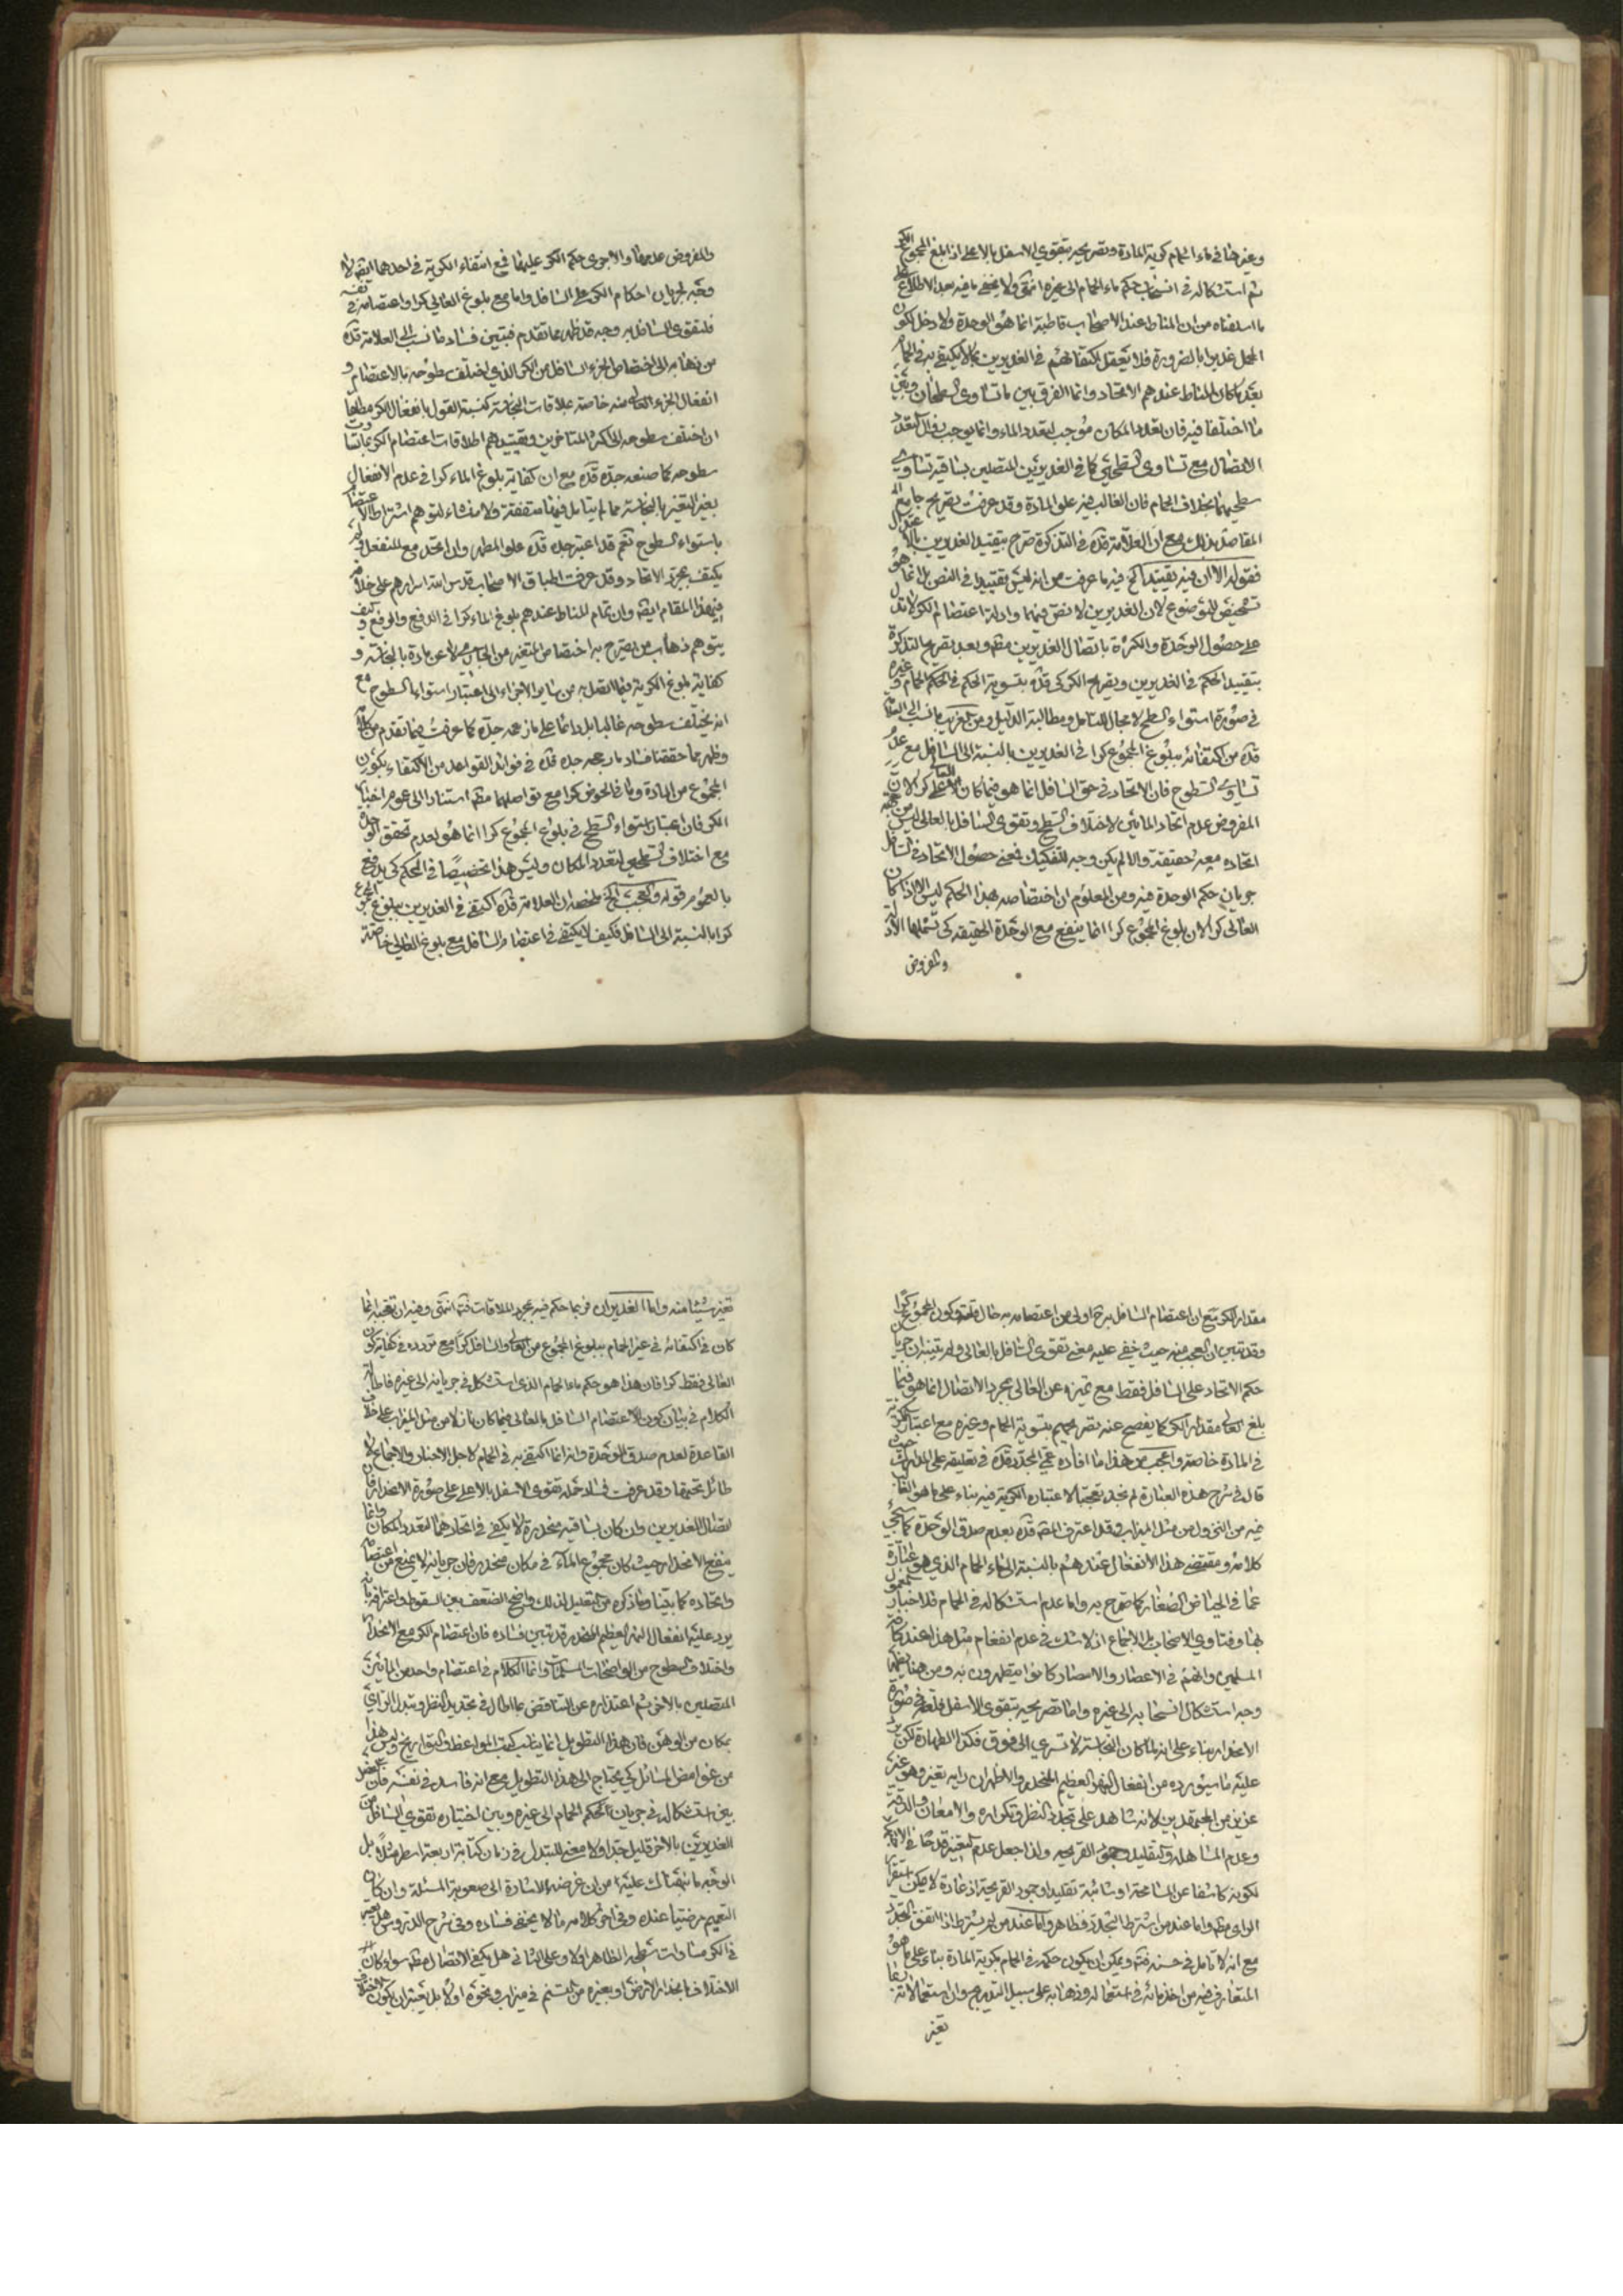 وغيرها في ماء الحمام كرية المادة وتصريحه بتقوي الاسفل بالاعلى اذا بلغ المجموع الكر
ثم استشكاله في انسحاب حكم ماء الحمام الى غيره انتهى ولا يخفى ما فيه بعد الاطلاع على
ما اسلفناه من ان المناط عند الاصحاب قاطبة انما هو الوحدة ولا دخل لكون
المحل غديرا بالضرورة فلا يتعقل اكتفائهم في الغديرين بما لا يكتفى به في الحمام
بعد ما كان المناط عندهم الاتحاد وانما الفرق بين ما تساوى السطحان وبين
ما اختلفا فيه فان تعدد المكان موجب لتعدد الماء وانما يوجب زوال التعدد
الاتصال مع تساوي السطحي كما في الغديرين المتصلين بساقية تساوي
سطحيهما بخلاف الحمام فان الغالب فيه علو المادة وقد عرفت تصريح جامع
المقاصد بذلك مع ان العلامة قده في التذكرة صرح بتقييد الغديرين بالاعتدال
فقوله الا ان فيه تقييدا الخ فيه ما عرفت من انه ليس تقييدا في النص بل انما هو
تشخيص للموضوع لان الغديرين لا نص فيهما وادلة اعتضام الكر لا تدل
على حصول الوحدة والكثرة باتصال الغديرين مطه وبعد تصريح التذكرة
بتقييد الحكم في الغديرين وتصريح الكركي قده بتسوية الحكم في الحمام وغيره
في صورة استواء السطح لا مجال للتامل ومطالبة الدليل ومن الغريب ما نسب الى العلامة
قده من اكتفائه ببلوغ المجموع كرا في الغديرين بالنسبة الى السافل مع عدم
تساوي السطوح فان الاتحاد في حق السافل انما هو فيما كان الاعلى كرا لان
المفروض عدم اتحاد المائين لاختلاف السطح وتقوى السافل بالعالي ليس من جهة
اتحاده معه حقيقة والا لم يكن وجه للتفكيك فمعنى حصول الاتحاد في السافل
جريان حكم الوحدة فيه ومن المعلوم ان اختصاصه بهذا الحكم ليس الا اذا كان
العالي كرا لان بلوغ المجموع كرا انما ينفع مع الوحدة الحقيقه كي تشملها الادلة
والمفروض
والمفروض عدمها والا جرى حكم الكر عليهما فمع انتفاء الكرية في احدهما ايضه لا
وجه لجريان احكام الكر على السافل واما مع بلوغ العالي كرا واعتصامه في نفسه
فلتقوى السافل به وجه قد ظهر مما تقدم فتبين فساد ما نسب الى العلامة قده
من ذهابه الى اختصاص الجزء السافل من الكر الذي اختلف سطوحه بالاعتصام و
انفعال الجزء العالي منه خاصة بملاقات النجاسة كنسبة القول بانفعال الكر مطلقا
ان اختلف سطوحه الى اكثر المتاخرين وتقييدهم اطلاقات اعتصام الكر بما تساوت
سطوحه كما صنعه جده قده مع ان كفاية بلوغ الماء كرا في عدم الانفعال
بغير التغير بالنجاسة مما لم يتامل فيها متفقه ولا منشاء لتوهم اشتراط الاعتصام
باستواء السطوح نعم قد اعتبر جده قده علو المطهر وان اتحد مع المنفعل ولم
يكتف بمجرد الاتحاد وقد عرفت اطباق الاصحاب قدس الله اسرارهم على خلافه
في هذا المقام ايضه وان تمام المناط عندهم بلوغ الماء كرا في الدفع والرفع وكيف
يتوهم ذهاب من يصرح به اختصاص المتغير من الجاري لا عن مادة بالنجاسة و
كفاية بلوغ الكرية فيما اتصل به من ساير الاجزاء الى اعتبار استواء السطوح مع
انه يختلف سطوحه غالبا بل دائما على ما زعمه جده كما عرفت فيما تقدم من كلامه
وظهر مما حققنا فساد ما رجحه جده قده في فوائد القواعد من الاكتفاء بكون
المجموع من المادة وما في الحوض كرا مع تواصلهما مطه استنادا الى عموم اخبار
الكر فان اعتبار استواء السطح في بلوغ المجموع كرا انما هو لعدم تحقق الوحدة
مع اختلاف السطحين لتعدد المكان وليس هذا تخصيصا في الحكم كي يدفع
بالعموم قوله والعجب الخ ملخصه ان العلامة قده اكتفى في الغديرين ببلوغ المجموع
كرا بالنسبة الى السافل فكيف لا يكتفى في اعتصام السافل مع بلوغ العالي خاصة
مقدار الكر مع ان اعتصام السافل به ح اولى من اعتصامه به حال قلته وكون المجموع كرا
وقد تبين ان العجب منه حيث خفي عليه معنى تقوى السافل بالعالي ولم يتبين ان جريان
حكم الاتحاد على السافل فقط مع تميزه عن العالي بمجرد الاتصال انما هو فيما
بلغ العالي مقدار الكر كما يفصح عنه تصريحهم بتسوية الحمام وغيره مع اعتبار الكرية
في المادة خاصة واعجب من هذا ما افاده عمي المجدد قده في تعليقه على المدارك حيث
قال في شرح هذه العبارة لم نجد تعجبا لاعتباره الكرية فيه بناء على ما هو الغالب
فيه من النزول من مثل الميزاب وقد اعترف المصه قده بعدم صدق الوحدة كما سيجيء
كلامه ومقتضى هذا الانفعال عندهم بالنسبة الى ماء الحمام الذي هو عبارة
عما في الحياض الصغار كما صرح به واما عدم استشكاله في الحمام فلاخبار معمول
بها وفتاوي الاصحاب بل الاجماع اذ لا شك في عدم انفعام مثل هذا عند كافة
المسلمين وانهم في الاعصار والامصار كانوا يتطهرون به ومن هنا يظهر
وجه استشكال انسحابه الى غيره واما تصريحه بتقوى الاسفل فلعله في صورة
الانحدار بناء على انه لما كان النجاسة لا تسري الى فوق فكذا الطهارة لكن يرد
عليه ما سيورده من انفعال النهر العظيم المنحدر والاظهر ان رايه تغير وهو غير
عزيز من المجتهدين لانه شاهد على تجديد النظر وتكراره والامعان والدقة
وعدم المساهلة والتقليد وجمود القريحه ولذا جعل عدم التغير قدحا في
لكونه كاشفا عن المسامحة او شائبة تقليد او جمود القريحة اذ عادة لا يمكن استقرار
الراي مطه واما عند من اشترط التجدد فظاهر واما عند من لم يشترط اذا اتفق التجدد
مع انه لا تامل في حسنه فتم ويمكن ان يكون حكمه في الحمام بكرية المادة بناء على ما هو
المتعارف فيه من اخذ مائه في استعماله وذهابه على سبيل التدريج وان استعمالاته
تغير
تغير شيئا منه واما الغديران فربما حكم فيه بمجرد الملاقات فتم انتهى وفيه ان تعجبه انما
كان في اكتفائه في غير الحمام ببلوغ المجموع من العالي والسافل كرا مع تردده في كفاية كون
العالي فقط كرا فان هذا هو حكم ماء الحمام الذي استشكل في جريانه الى غيره فاطالة
الكلام في بيان كون اعتصام السافل بالعالي فيما كان نازلا من مثل الميزاب على خلاف
القاعدة لعدم صدق الوحدة وانه انما اكتفى به في الحمام لاجل الاخبار والاجماع لا
طائل تحتها وقد عرفت فساد حمله تقوى الاسفل بالاعلى على صورة الانحدار فان
اتصال الغديرين وان كان بساقية منحدرة لا يكفي في اتحادهما لتعدد المكان وانما
ينفع الانحدار حيث كان مجموع الماء في مكان منحدر فان جريانه لا يمنع من اعتصامه
واتحاده كما بينا وما ذكره من التعليل لذلك واضح الضعف بين السقوط واعترافه بانه
يرد عليه انفعال النهر العظيم المنحدر قد تبين فساده فان اعتصام الكر مع الانحدار
واختلاف السطوح من الواضحات المسلمات وانما الكلام في اعتصام واحد من المائين
المتصلين بالاخر ثم اعتذاره عن التناقض بما اطال في تجديد النظر وتبدل الراي
بمكان من الوهن فان هذا التطويل انما يناسب كتب المواعظ والتواريخ وليس هذا
من غوامض المسائل كي يحتاج الى هذا التطويل مع انه فاسد في نفسه فان الفصل
بين استشكاله في جريان حكم الحمام الى غيره وبين اختياره تقوى السافل من
الغديرين بالاخر قليل جدا ولا معنى للتبدل في زمان كتابة اربعة اسطر مثلا بل
الوجه ما نبهناك عليه من ان غرضه الاشارة الى صعوبة المسئلة وان كان
التعميم مرضيا عنده وفي اخر كلامه مالا يخفى فساده وفي شرح الدروس هل يعتبر
في الكر مساوات سطحه الظاهر اولا وعلى الثاني هل يكفي الاتصال مطه سواء كان
الاختلاف بانحدار الارض او بغيره من التسنم في ميزاب ونحوه اولا بل يعتبر ان يكون الاختلاف